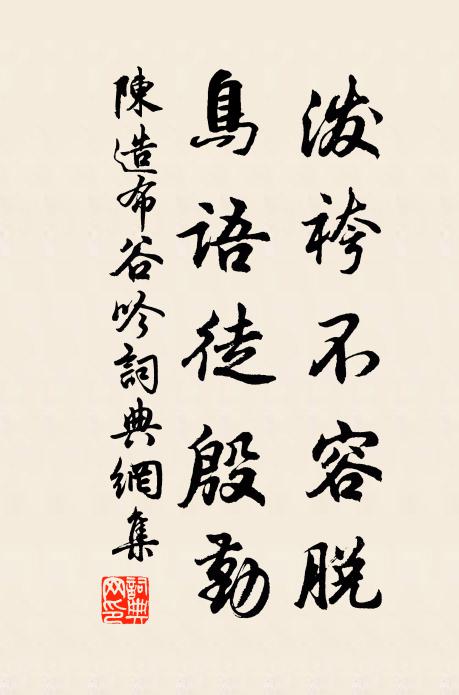 潑袴不容脫
鳥語徒殷勤
陳造布谷吟詞典網集
詞典网印